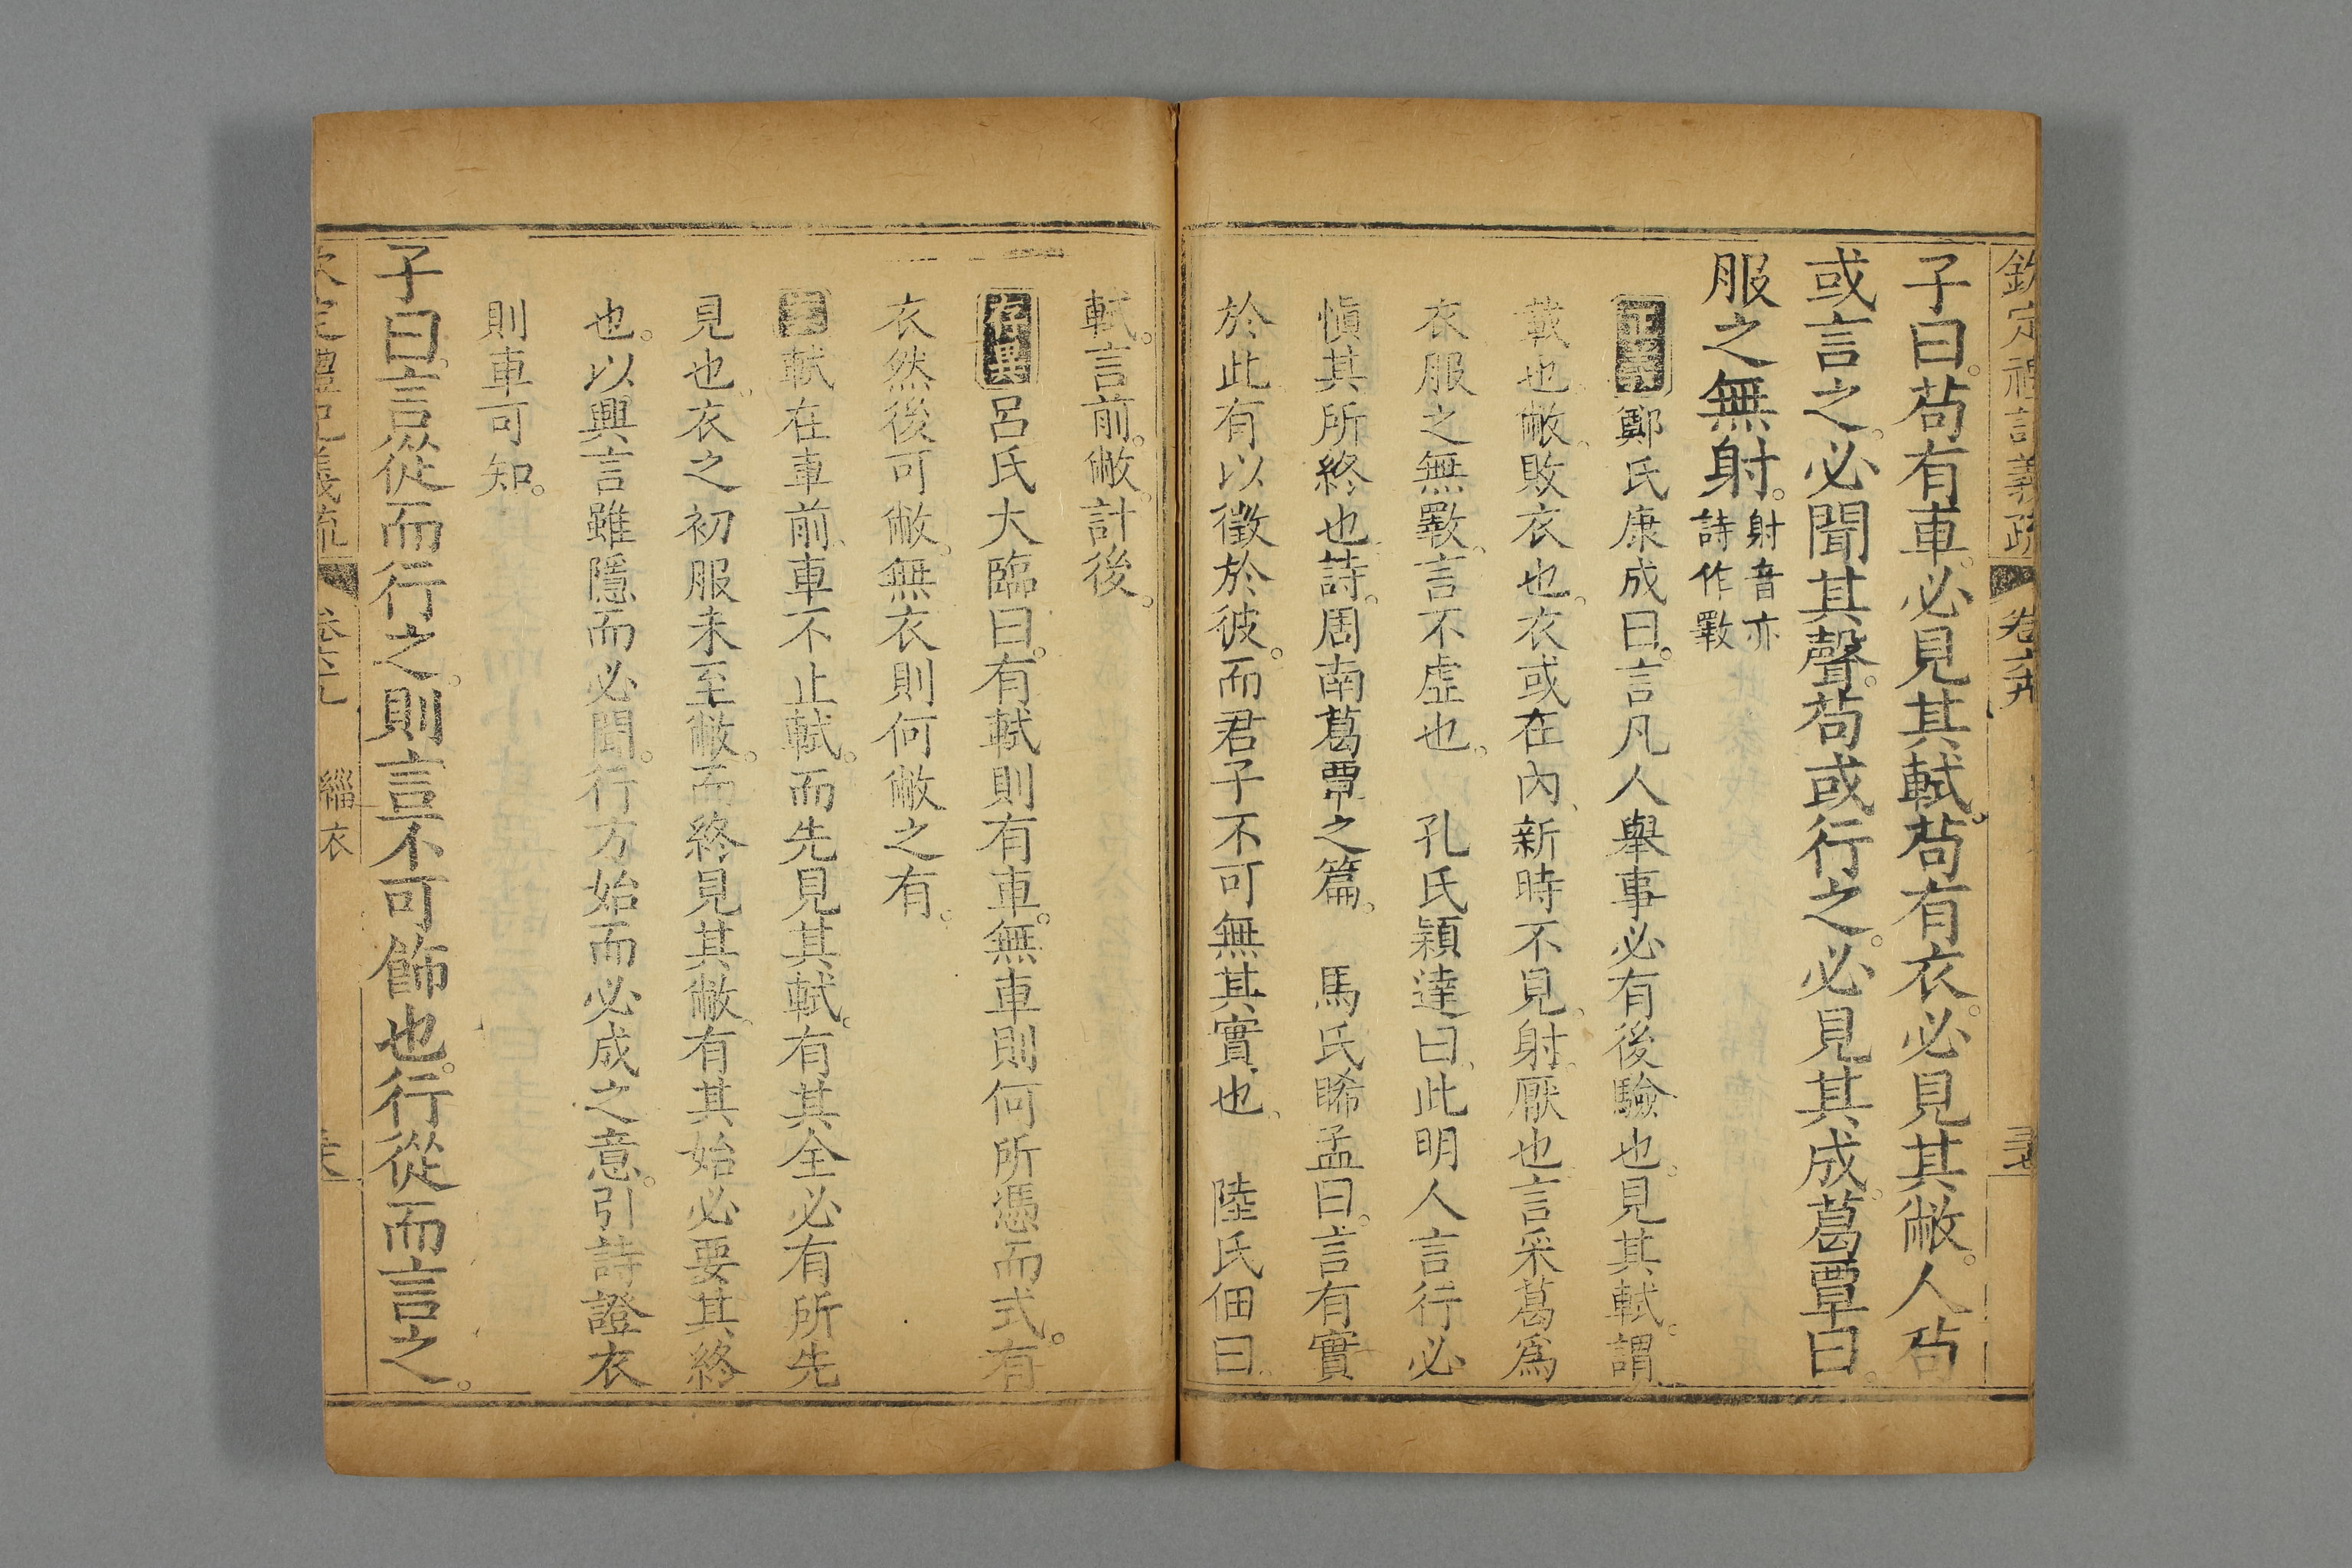 欽定禮記義疏 卷六十九
子曰。苟有車。必見其軾。苟有衣。必見其敝。人苟
或言之。必聞其聲。苟或行之。必見其成。葛覃曰。
服之無射。射音亦詩作斁
正義鄭氏康成曰。言凡人舉事必有後驗也。見其軾。謂
載也。敝。敗衣也。衣或在內、新時不見。射。厭也。言采葛爲
衣服之無斁。言不虛也。 孔氏穎達曰、此明人言行必
愼其所終也。詩。周南葛覃之篇。 馬氏睎孟曰。言有實
於此。有以徵於彼。而君子不可無其實也、 陸氏佃曰。
軾。言前。敝。計後。
存異呂氏大臨曰。有軾則有車。無車則何所憑而式。有
衣然後可敝。無衣則何敝之有。
軾在車前、車不止軾。而先見其軾。有其全必有所先
見也、衣之初服未至敝。而終見其敝。有其始必要其終
也。以興言雖隱而必聞。行方始而必成之意。引詩證衣
則車可知。
子曰。言從而行之。則言不可飾也。行從而言之。
欽定禮記義疏 緇衣